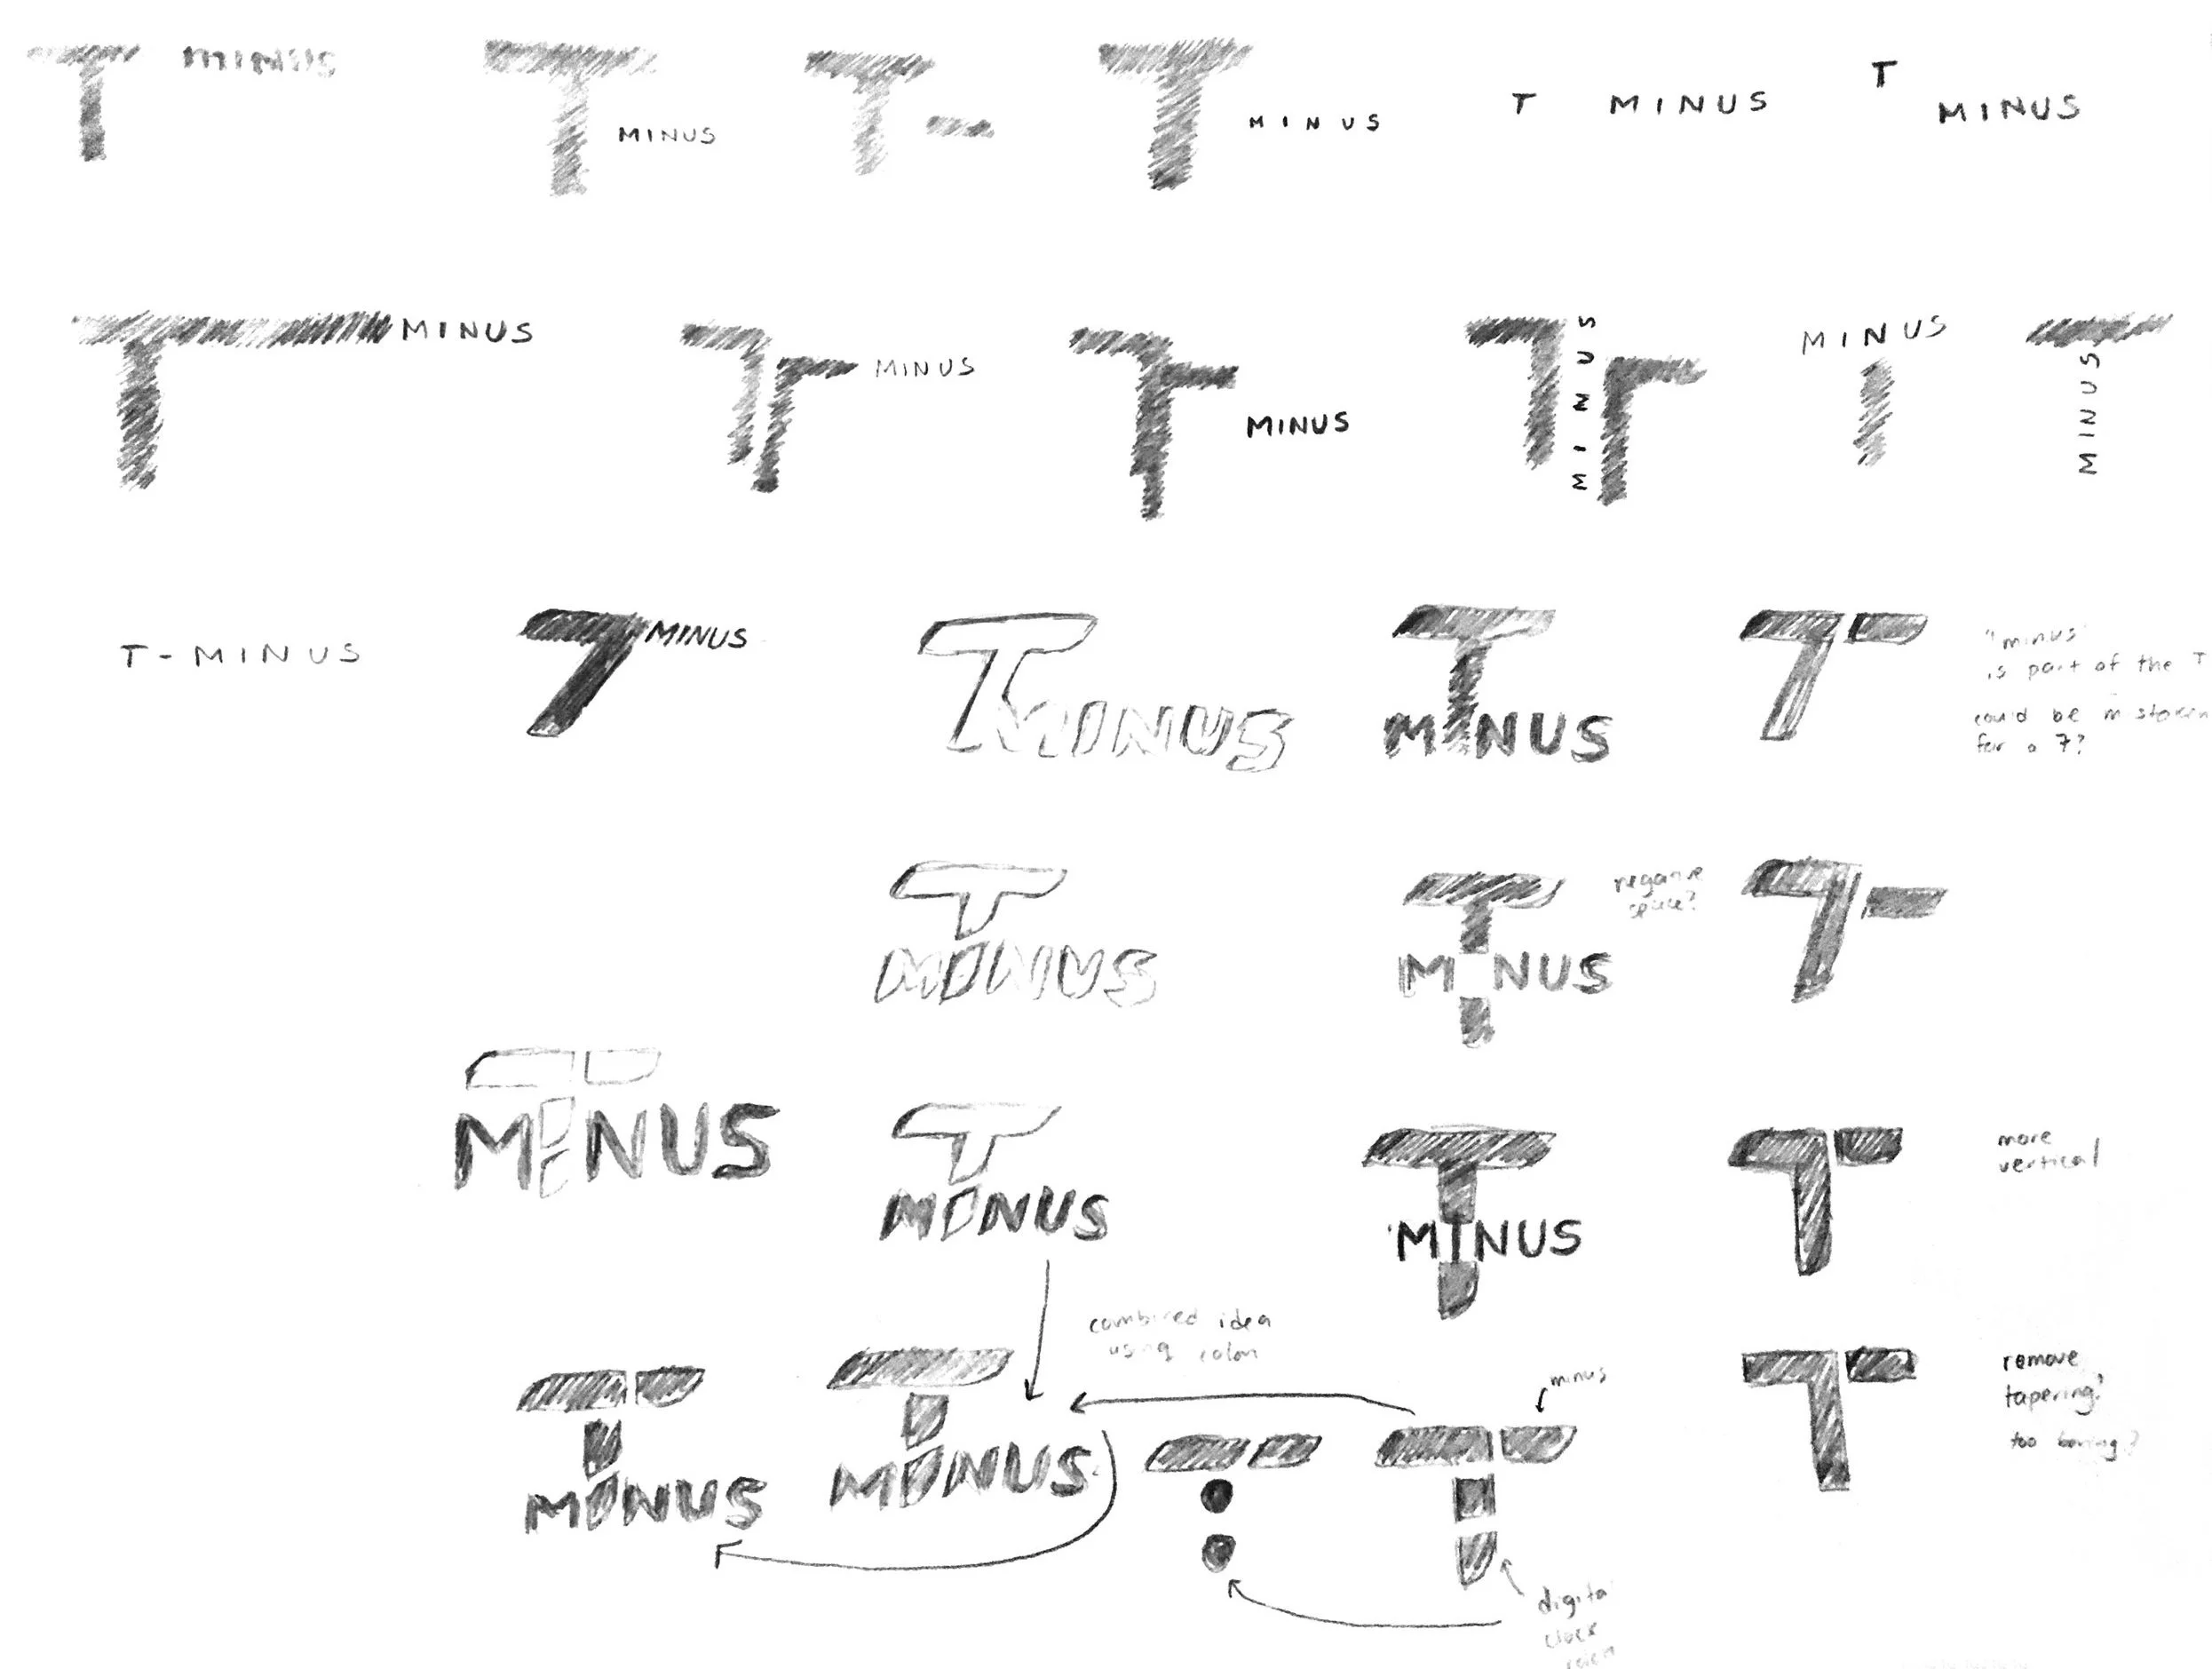 T MINUS
T MINUS
T -
T MINUS
T MINUS
T
MINUS
T MINUS
T MINUS
T MINUS
T MINUS
MINUS
T MINUS
T-MINUS
T MINUS
T MINUS
T
MINUS
T
"minus"
is part of the T
could be mistaken
for a 7?
T
MINUS
T
M NUS
negative
space?
T
MINUS
T
MINUS
T
MINUS
T
more
vertical
combined idea
using colon
T
MINUS
T
MINUS
minus
T
remove
tapering?
too boring?
digital
clock